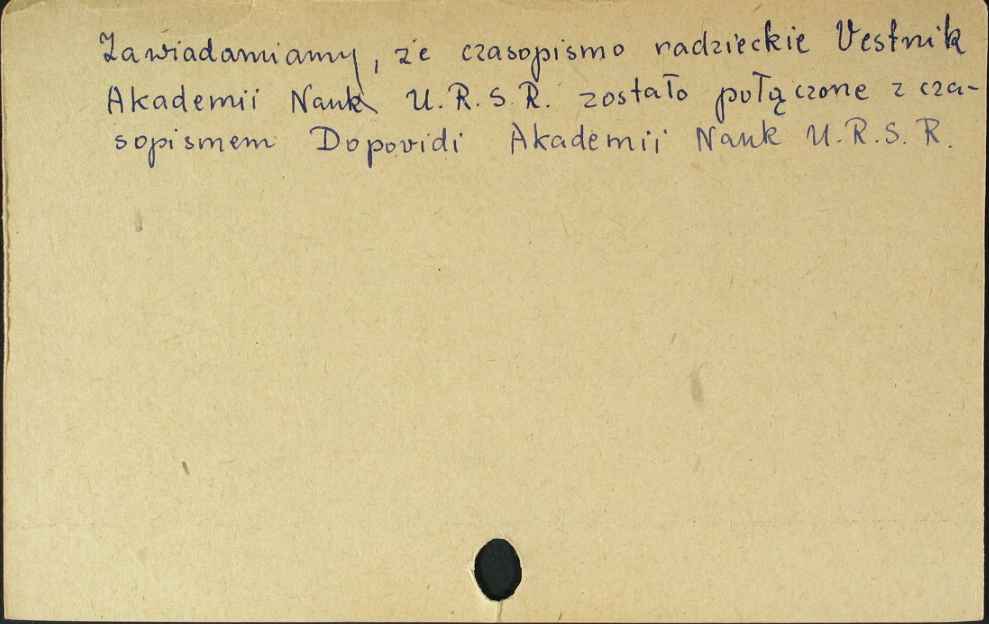 Zawiadamiamy, że czasopismo radzieckie Vestnik
Akademii Nauk U.R.S.R. zostało połączone z cza-
sopismem Dopovidi Akademii Nauk U.R.S.R.